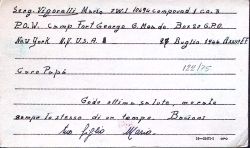 Serg. Vigorelli, Mario I.W.S.I 10694 compound 1 Co. 3
P.O.W. Camp Fort George G. Meade Box 20 G.P.O.
New York N.Y. U.S.A. Luglio 1944
Caro Papà 122/75
Godo ottima salute, morale
sempre lo stesso di un tempo. Bacioni
tuo figlio Mario.